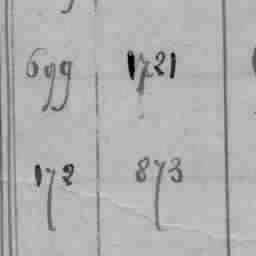 699 1721
172 873